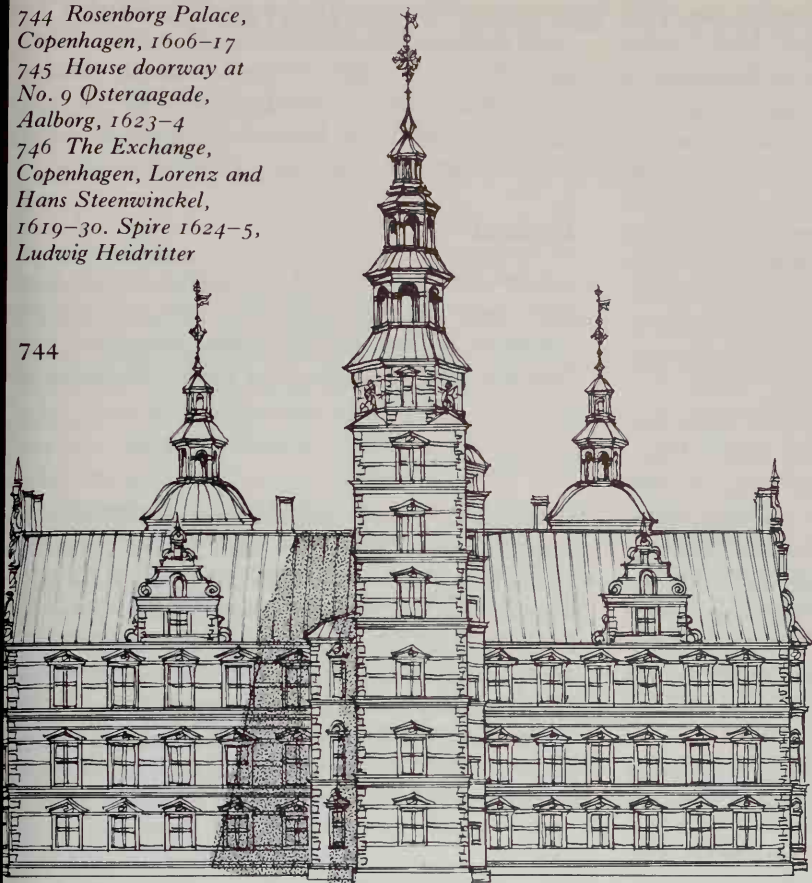 744 Rosenborg Palace,
Copenhagen, 1606–17
745 House doorway at
No. 9 Østeraagade,
Aalborg, 1623–4
746 The Exchange,
Copenhagen, Lorenz and
Hans Steenwinckel,
1619–30. Spire 1624–5,
Ludwig Heidritter
744